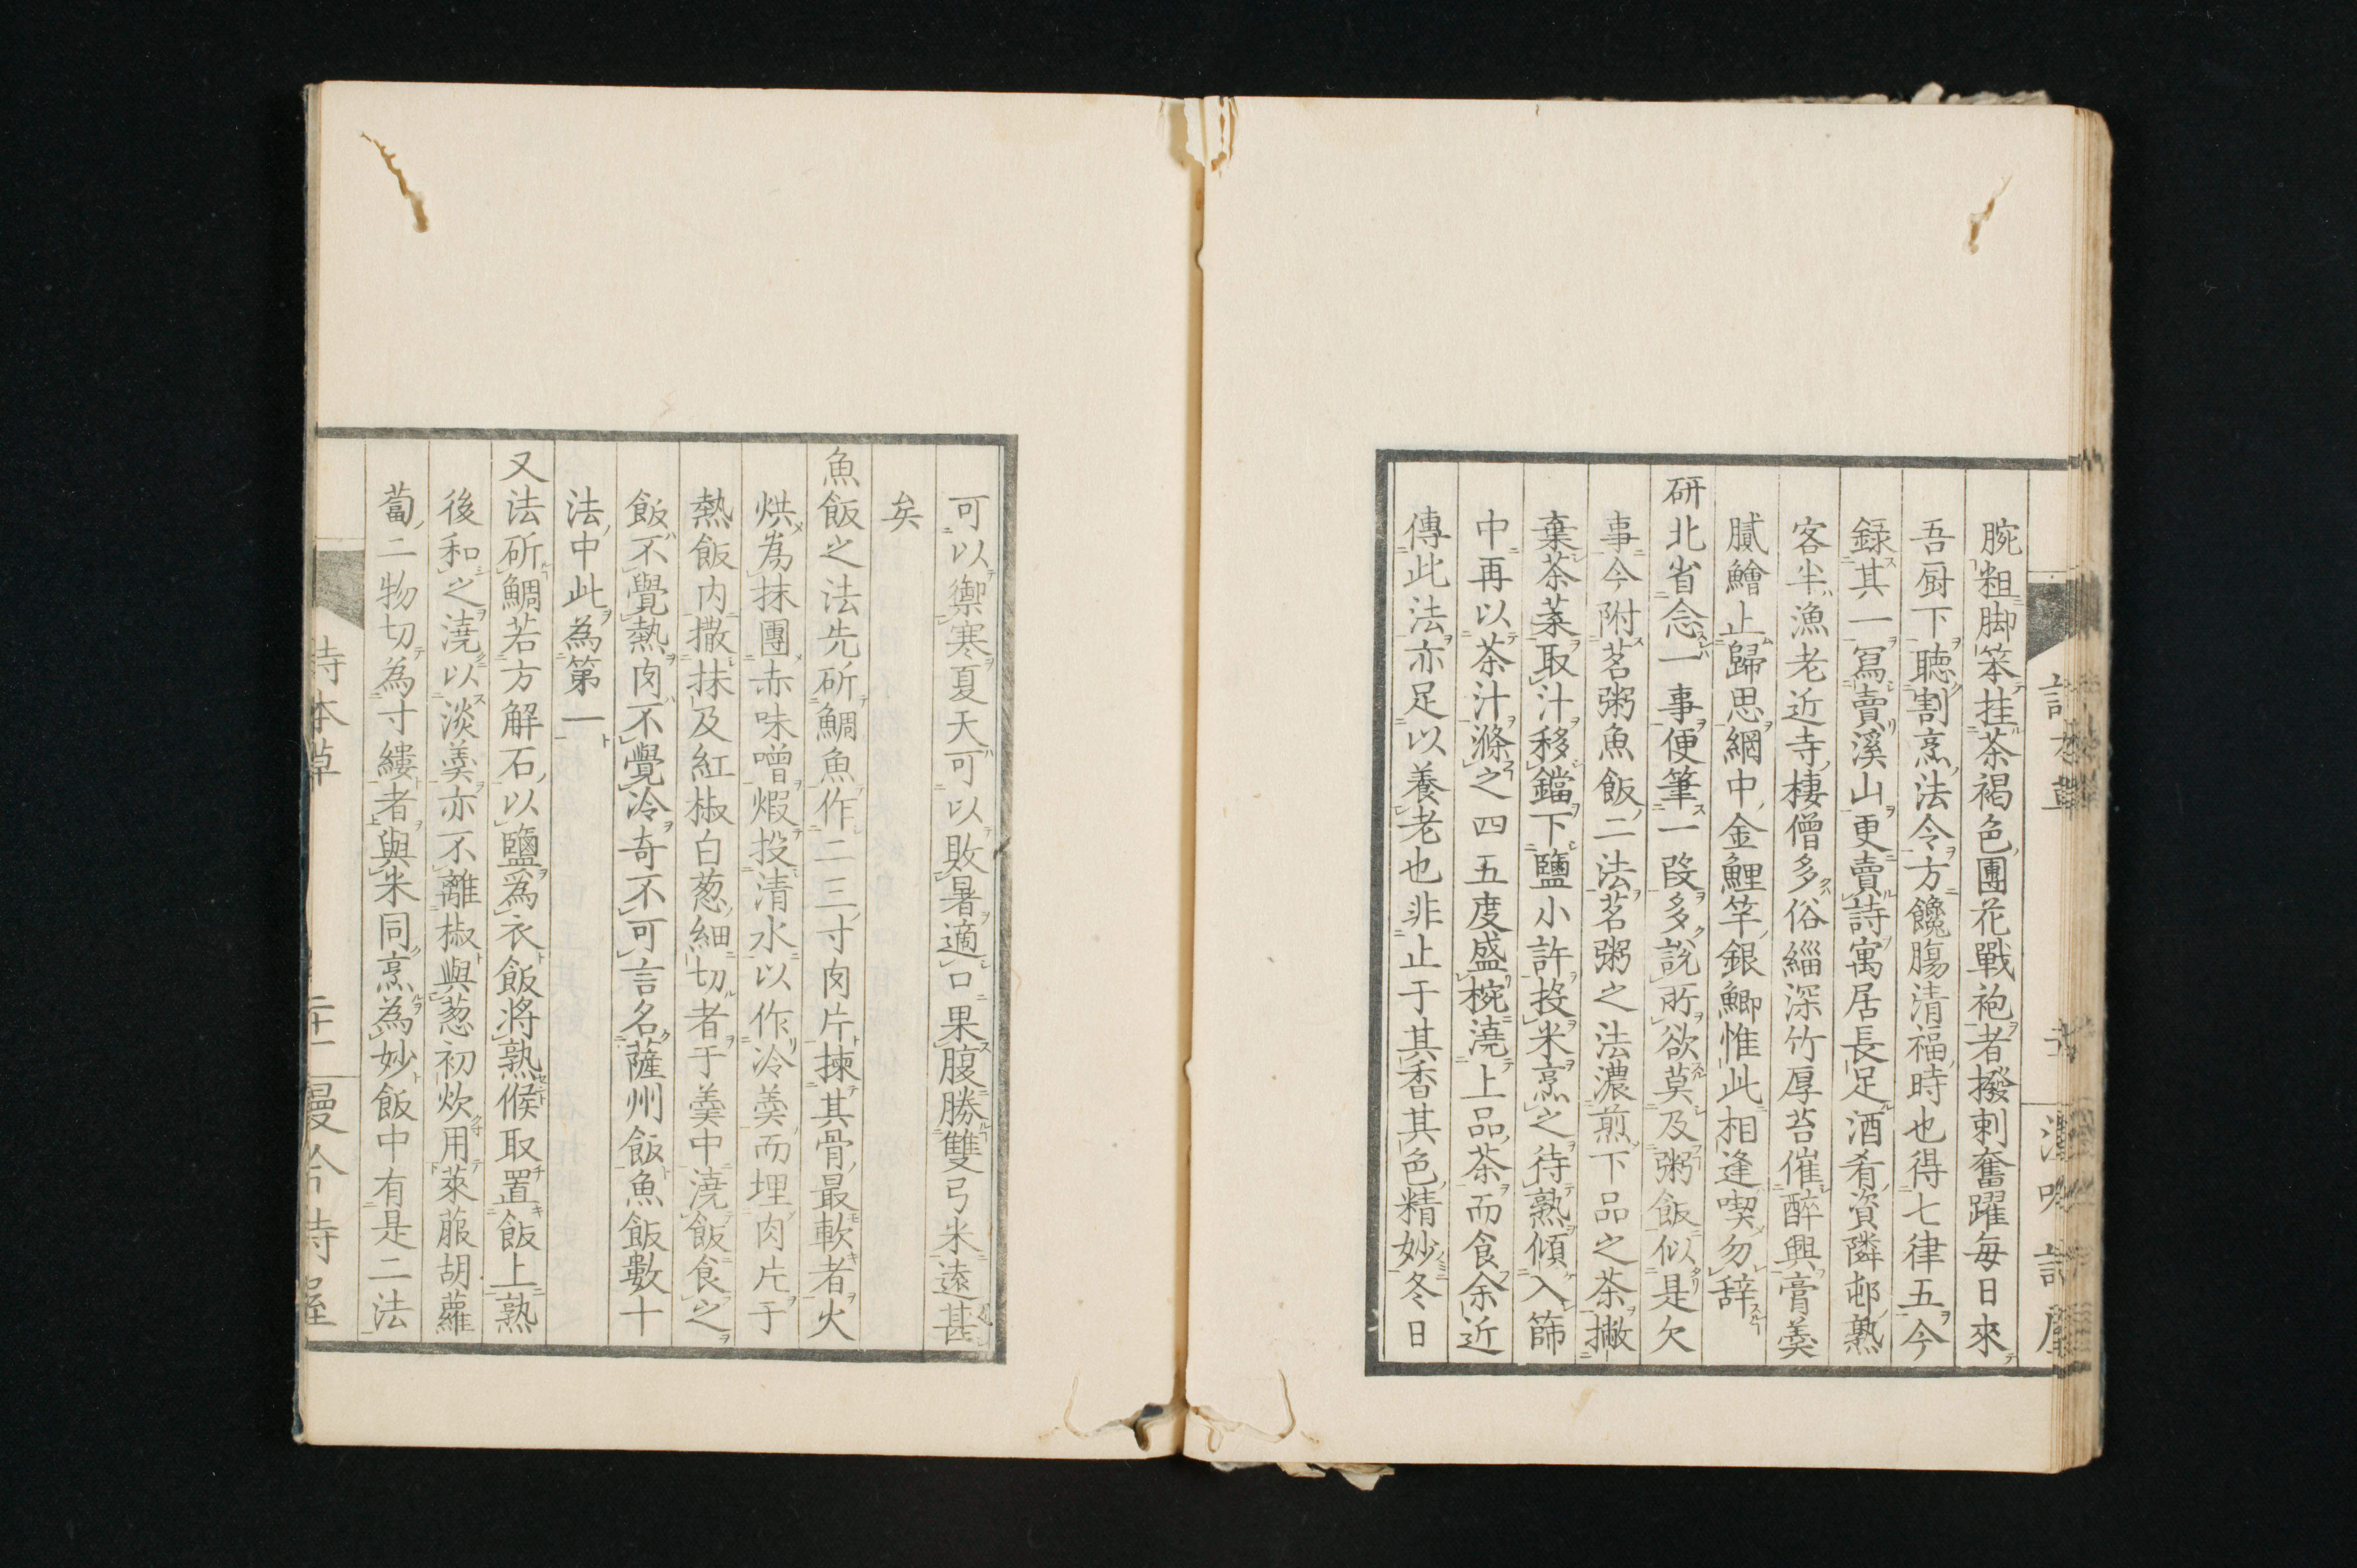 腕粗脚笨挂茶褐色團花戰袍者撥剌奮躍毎日來
吾厨下聽割烹法令方饞膓清福時也得七律五今
録其一冩賣溪山更賣詩寓居長足酒肴資隣邨熟
客半漁老近寺棲僧多俗緇深竹厚苔催醉興膏羮
膩鱠止歸思網中金鯉竿銀鯽惟此相逢喫勿辞
研北省念一事便筆一段多説所欲莫及粥飯似是欠
事今附茗粥魚飯二法茗粥之法濃煎下品之茶撇
棄茶葉取汁移鐺下鹽小許投米烹之待熟傾入篩
中再以茶汁滌之四五度盛椀澆上品茶而食余近
傳此法亦足以養老也非止于其香其色精妙冬日
可以禦寒夏天可以敗暑適口果腹勝雙弓米遠甚
矣
魚飯之法先斫鯛魚作二三寸肉片揀其骨最軟者火
烘為抹團赤味噌煆投清水以作冷羮而埋肉片于
熱飯内撒抹及紅椒白葱細切者于羮中澆飯食之
飯不覺熱肉不覺冷奇不可言名薩州飯魚飯數十
法中此為第一
又法斫鯛若方解石以鹽為衣飯將熟候取置飯上熟
後和之澆以淡羮亦不離椒與葱初炊用萊菔胡蘿
蔔二物切為寸縷者與米同烹為妙飯中有是二法
詩本草
二十一
漫吟詩屋